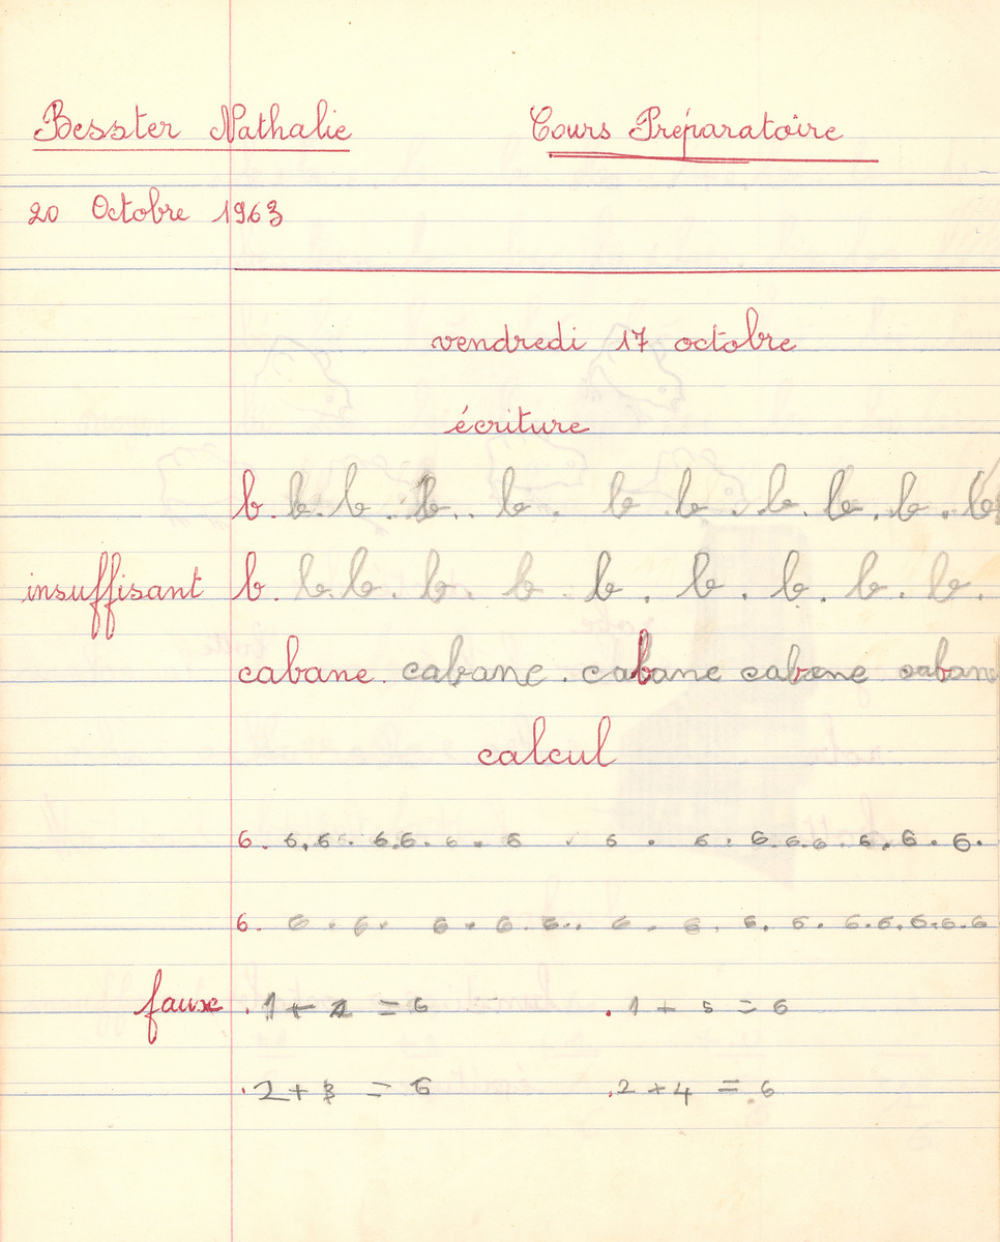 Besster Nathalie Cours Préparatoire
20 Octobre 1963
vendredi 17 octobre
écriture
b. b. b. b.. b. b b. b. b. b. b
insuffisant b. b. b. b. b b. b. b. b. b.
cabane. cabane. cabane cabane cabane
calcul
6. 6. 6. 6. 6. 6. 6 6. 6. 6. 6. 6. 6. 6. 6.
6. 6. 6. 6. 6. 6.. 6. 6. 6. 6. 6. 6. 6. 6. 6
faux .1 + 2 = 6 .1 + 5 = 6
.2 + 3 = 6 .2 + 4 = 6